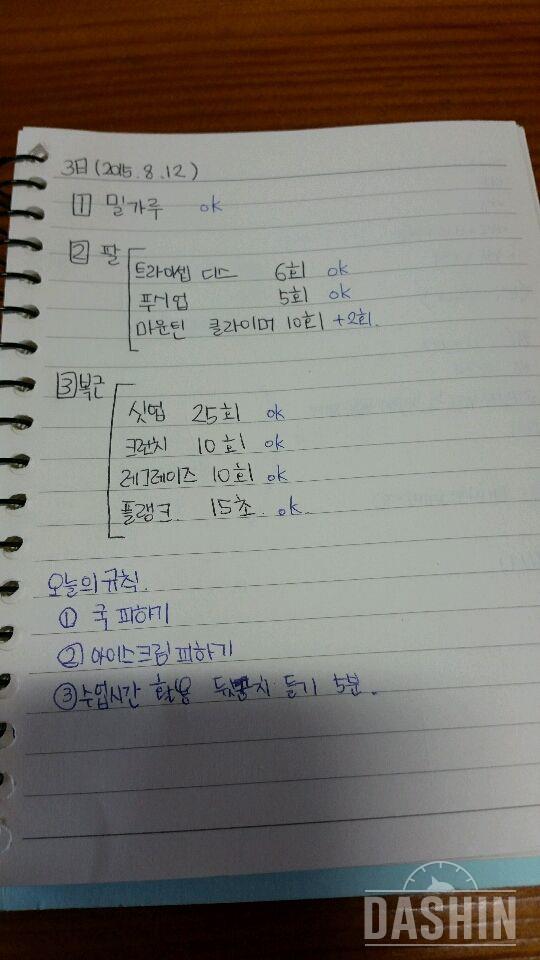 3日 (2015. 8. 12)
1 밀가루 ok
2 팔
트라이셉 디스 6회 ok
푸시업 5회 ok
마운틴 클라이머 10회 +2회.
3 복근
싯업 25회 ok
크런치 10회 ok
레그레이즈 10회 ok
플랭크. 15초. ok.
오늘의 규칙.
① 국 피하기
② 아이스크림 피하기
③ 수업시간 활용 뒤꿈치 들기 5분.
DASHIN